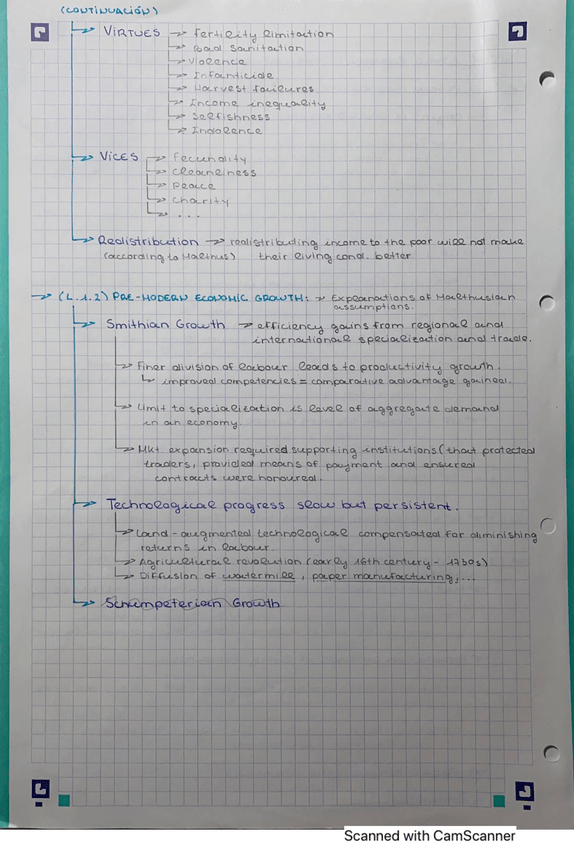 (CONTINUACIÓN)
VIRTUES → Fertility limitation
→ Bad Sanitation
→ Violence
→ Infanticide
→ Harvest failures
→ Income inequality
→ Selfishness
→ Indolence
VICES → Fecundity
→ cleanliness
→ Peace
→ charity
→ ...
Redistribution → realistributing income to the poor will not make
(according to Malthus) their living cond. better
→ (L.1.2) PRE-MODERN ECONOMIC GROWTH: → Explanations of Malthusian
assumptions.
Smithian Growth → efficiency gains from regional and
international specialization and trade.
→ Finer division of labour leads to productivity growth.
↳ improved competencies = comparative advantage gained.
→ Limit to specialization is level of aggregate demand
in an economy.
→ Mkt expansion required supporting institutions (that protected
traders, provided means of payment and ensured
contracts were honoured.
Technological progress slow but persistent.
→ Land-augmented technological compensated for diminishing
returns in labour.
→ Agricultural revolution (early 16th century - 1750s)
→ Diffusion of watermill, paper manufacturing, ...
Schumpeterian Growth
Scanned with CamScanner